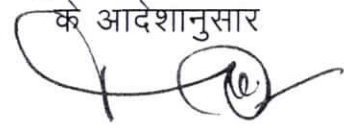 के आदेशानुसार